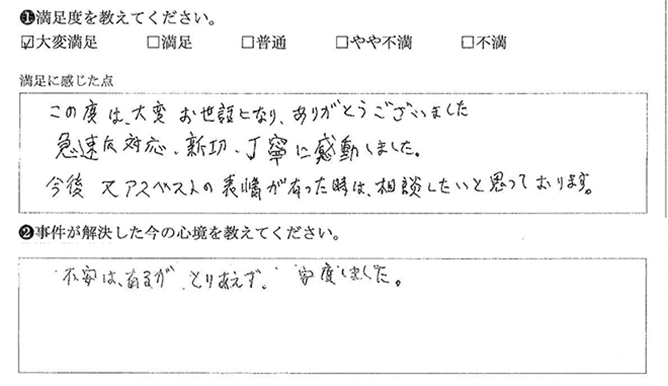 ❶満足度を教えてください。
☑大変満足 □満足 □普通 □やや不満 □不満
満足に感じた点
この度は、大変 お世話になり、ありがとうございました
急速な対応、新切、丁寧に感動しました。
今後 又アスベストの表情が有った時は、相談したいと思っております。
❷事件が解決した今の心境を教えてください。
不安は、あるが とりあえず、 安度しました。